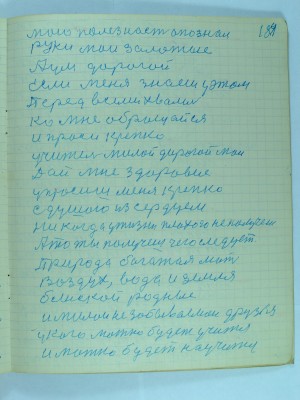 189
мою полезност опознал
руки мои залотые
Аум дорогой
если меня знаеш уэтом
Перед всеми хвали
Ко мне обрашайся
и проси крепко
учител милой дорогой мой
Дай мне здоровие
упросиш меня крепко
с душою из сердцем
Никогда у жизни плохого не получеш
А то ты получиш чего следует
Природа богатая мат
Воздух, вода и земля
близкой родные
и милой незабываемаи друзья
у кого можно будет учится
и можно будет научится